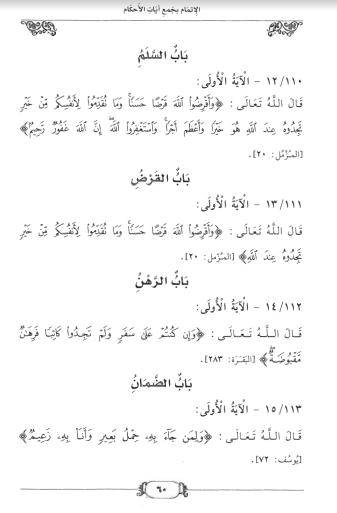 الإتمام بجمع آيات الأحكام
بَابُ السَّلَمُ
١١٠/ ١٢ - الْآيَةُ الْأُولَى:
قَالَ اللَّهُ تَعَالَى: ﴿وَأَقْرِضُوا۟ ٱللَّهَ قَرْضًا حَسَنًا ۚ وَمَا تُقَدِّمُوا۟ لِأَنفُسِكُم مِّنْ خَيْرٍ
تَجِدُوهُ عِندَ ٱللَّهِ هُوَ خَيْرًا وَأَعْظَمَ أَجْرًا ۚ وَٱسْتَغْفِرُوا۟ ٱللَّهَ ۖ إِنَّ ٱللَّهَ غَفُورٌ رَّحِيمٌ﴾
[المزّمل: ٢٠].
بَابُ الْقَرْضُ
١١١/ ١٣ - الْآيَةُ الْأُولَى:
قَالَ اللَّهُ تَعَالَى: ﴿وَأَقْرِضُوا۟ ٱللَّهَ قَرْضًا حَسَنًا ۚ وَمَا تُقَدِّمُوا۟ لِأَنفُسِكُم مِّنْ خَيْرٍ
تَجِدُوهُ عِندَ ٱللَّهِ﴾ [المزمل: ٢٠].
بَابُ الرَّهْنُ
١١٢/ ١٤ - الْآيَةُ الْأُولَى:
قَالَ اللَّهُ تَعَالَى: ﴿وَإِن كُنتُمْ عَلَىٰ سَفَرٍ وَلَمْ تَجِدُوا۟ كَاتِبًا فَرِهَٰنٌ
مَّقْبُوضَةٌ ۖ﴾ [البَقَرَة: ٢٨٣].
بَابُ الضَّمَانُ
١١٣/ ١٥ - الْآيَةُ الْأُولَى:
قَالَ اللَّهُ تَعَالَى: ﴿وَلِمَن جَآءَ بِهِۦ حِمْلُ بَعِيرٍ وَأَنَا۠ بِهِۦ زَعِيمٌ﴾
[يُوسُف: ٧٢].
٦٠